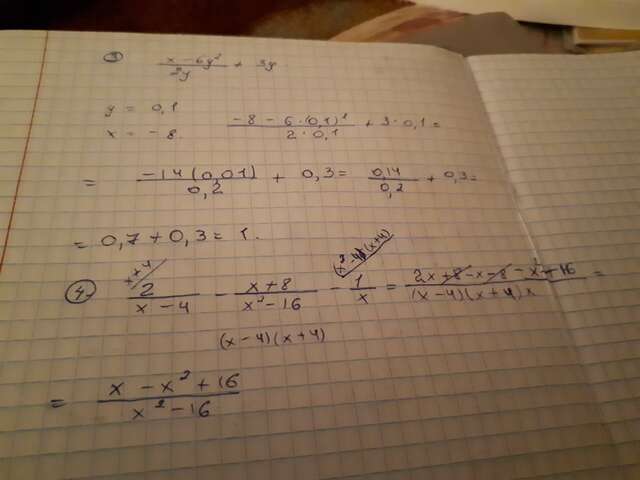 ③ (x - 6y²)/(2y) + 3y
y = 0,1
x = -8. (-8 - 6·(0,1)²)/(2·0,1) + 3·0,1 =
= (-14(0,01))/(0,2) + 0,3 = (0,14)/(0,2) + 0,3 =
= 0,7 + 0,3 = 1.
④ 2/(x - 4) - (x + 8)/(x² - 16) - 1/x = (2x + 8 - x - 8 - x² + 16)/((x - 4)(x + 4)x) =
(x - 4)(x + 4)
= (x - x² + 16)/(x² - 16)